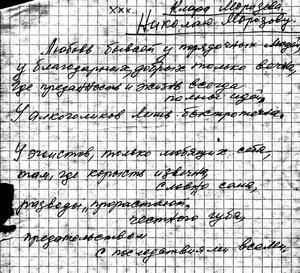 xxx.
Клара Морозова.
Николаю Морозову.
Любовь бывает у порядочных людей,
у благодарных, добрых только вечна,
где преданность и жизнь всегда
полны идей,
У алкоголиков лишь быстротечна.
У эгоистов, только любящих себя,
там, где корысть извечна,
словно сама,
разводы, прорастают,
честного губя,
предательством
с последствиями всеми.